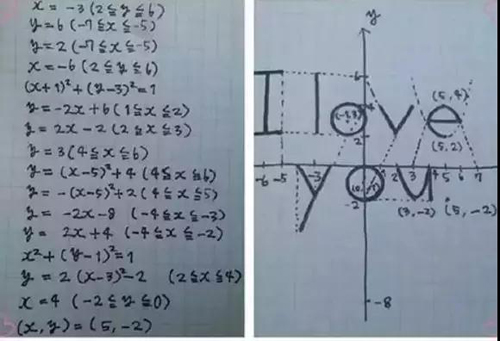 x = -3 (2 ≦ y ≦ 6)
y = 6 (-7 ≦ x ≦ -5)
y = 2 (-7 ≦ x ≦ -5)
x = -6 (2 ≦ y ≦ 6)
(x+1)² + (y-3)² = 1
y = -2x + 6 (1 ≦ x ≦ 2)
y = 2x - 2 (2 ≦ x ≦ 3)
y = 3 (4 ≦ x ≦ 6)
y = (x-5)² + 4 (4 ≦ x ≦ 6)
y = -(x-5)² + 2 (4 ≦ x ≦ 5)
y = -2x - 8 (-4 ≦ x ≦ -3)
y = 2x + 4 (-4 ≦ x ≦ -2)
x² + (y-1)² = 1
y = 2 (x-3)² - 2 (2 ≦ x ≦ 4)
x = 4 (-2 ≦ y ≦ 0)
(x, y) = (5, -2)
y
6
(5, 4)
4
I love
2
(5, 2)
-6 -5 -3 1 2 3 4 5 6 7
you
-2
(3, -2) (5, -2)
-8